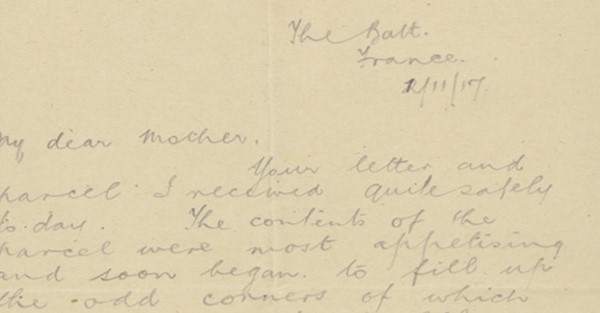 The Batt.
France.
2/11/17.
My dear Mother.
Your letter and
parcel I received quite safely
to-day. The contents of the
parcel were most appetising
and soon began. to fill up
the odd corners of which